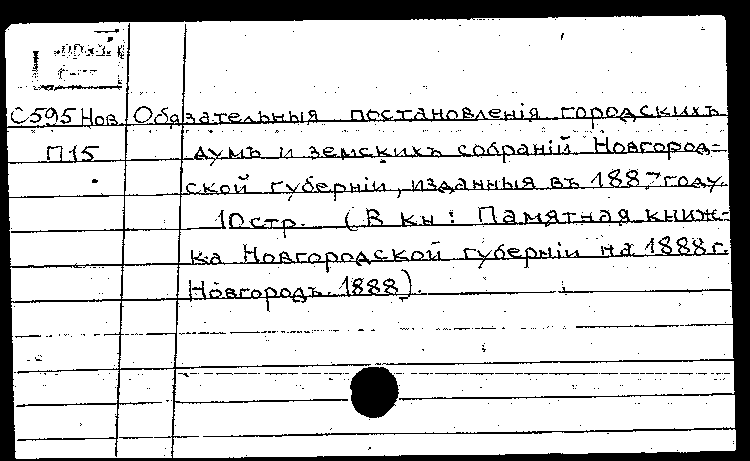 С595Нов. Обязательныя постановленія городскихъ
П15 думъ и земскихъ собраній Новгород=
ской губерніи, изданныя въ 1887 году.
10 стр. (В кн: Памятная книж-
ка Новгородской губерніи на 1888 г.
Новгородъ. 1888).